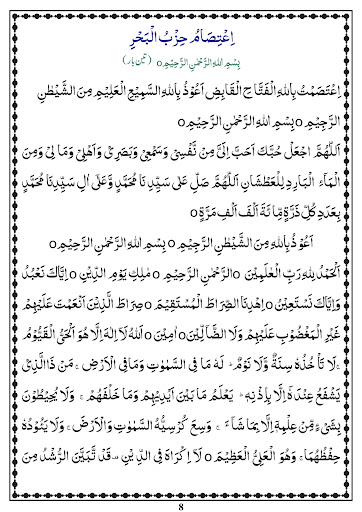 اِعْتِصَامُ حِزْبُ الْبَحْرِ
بِسْمِ اللهِ الرَّحْمٰنِ الرَّحِيْمِ o (تین بار)
اِعْتَصَمْتُ بِاللهِ الْفَتَّاحِ الْقَابِضِ اَعُوْذُ بِاللهِ السَّمِيْعِ الْعَلِيْمِ مِنَ الشَّيْطٰنِ
الرَّجِيْمِ o بِسْمِ اللهِ الرَّحْمٰنِ الرَّحِيْمِ o
اَللّٰهُمَّ اجْعَلْ حُبَّكَ اَحَبَّ اِلَيَّ مِنْ نَّفْسِيْ وَسَمْعِيْ وَبَصَرِيْ وَاَهْلِيْ وَمَالِيْ وَمِنَ
الْمَآءِ الْبَارِدِ لِلْعَطْشَانِ اَللّٰهُمَّ صَلِّ عَلٰى سَيِّدِنَا مُحَمَّدٍ وَّعَلٰى اٰلِ سَيِّدِنَا مُحَمَّدٍ
بِعَدَدِ كُلِّ ذَرَّةٍ مِّائَةَ اَلْفَ اَلْفِ مَرَّةٍ o
اَعُوْذُ بِاللهِ مِنَ الشَّيْطٰنِ الرَّجِيْمِ o بِسْمِ اللهِ الرَّحْمٰنِ الرَّحِيْمِ o
اَلْحَمْدُ لِلّٰهِ رَبِّ الْعٰلَمِيْنَ o الرَّحْمٰنِ الرَّحِيْمِ o مٰلِكِ يَوْمِ الدِّيْنِ o اِيَّاكَ نَعْبُدُ
وَاِيَّاكَ نَسْتَعِيْنُ o اِهْدِنَا الصِّرَاطَ الْمُسْتَقِيْمَ o صِرَاطَ الَّذِيْنَ اَنْعَمْتَ عَلَيْهِمْ
غَيْرِ الْمَغْضُوْبِ عَلَيْهِمْ وَلَا الضَّآلِّيْنَ o اٰمِيْنَ o اَللهُ لَآ اِلٰهَ اِلَّا هُوَ اَلْحَيُّ الْقَيُّوْمُ
لَا تَاْخُذُهٗ سِنَةٌ وَّلَا نَوْمٌ ؕ لَهٗ مَا فِى السَّمٰوٰتِ وَمَا فِى الْاَرْضِ ؕ مَنْ ذَا الَّذِيْ
يَشْفَعُ عِنْدَهٗٓ اِلَّا بِاِذْنِهٖ ؕ يَعْلَمُ مَا بَيْنَ اَيْدِيْهِمْ وَمَا خَلْفَهُمْ ۚ وَلَا يُحِيْطُوْنَ
بِشَيْءٍ مِّنْ عِلْمِهٖٓ اِلَّا بِمَا شَآءَ ۚ وَسِعَ كُرْسِيُّهُ السَّمٰوٰتِ وَالْاَرْضَ ۚ وَلَا يَئُوْدُهٗ
حِفْظُهُمَا ۚ وَهُوَ الْعَلِيُّ الْعَظِيْمُ o لَآ اِكْرَاهَ فِى الدِّيْنِ ۙ قَدْ تَّبَيَّنَ الرُّشْدُ مِنَ
8